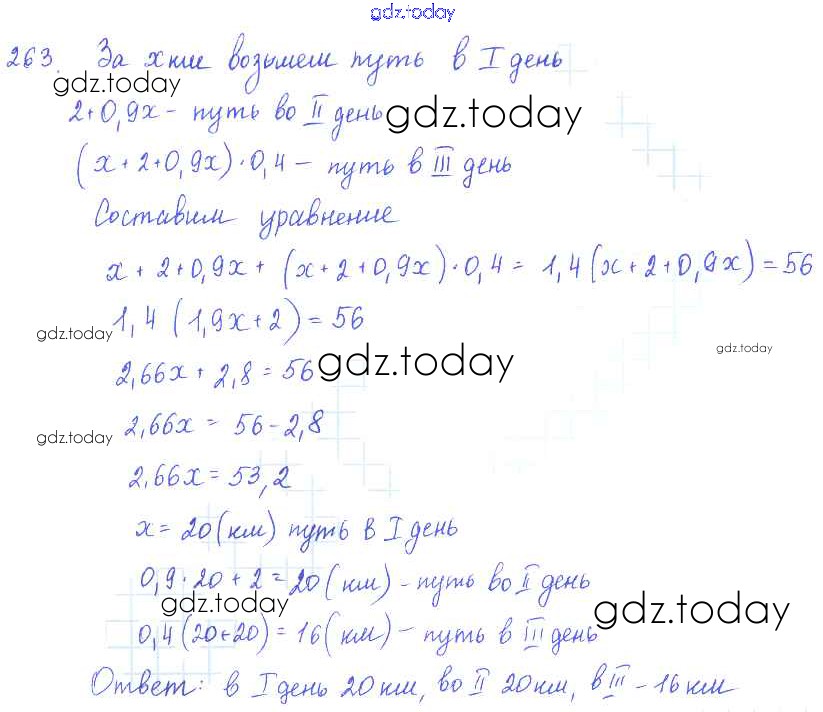 gdz.today
263. За x км возьмем путь в I день
gdz.today
2+0,9x - путь во II день
gdz.today
(x+2+0,9x)·0,4 - путь в III день
Составим уравнение
x+2+0,9x+(x+2+0,9x)·0,4 = 1,4(x+2+0,9x) = 56
gdz.today 1,4(1,9x+2) = 56
gdz.today
2,66x + 2,8 = 56
gdz.today
2,66x = 56-2,8
gdz.today
2,66x = 53,2
x = 20(км) путь в I день
0,9·20+2=20(км) - путь во II день
gdz.today
gdz.today
0,4(20+20) = 16(км) - путь в III день
Ответ: в I день 20 км, во II 20км, в III - 16 км